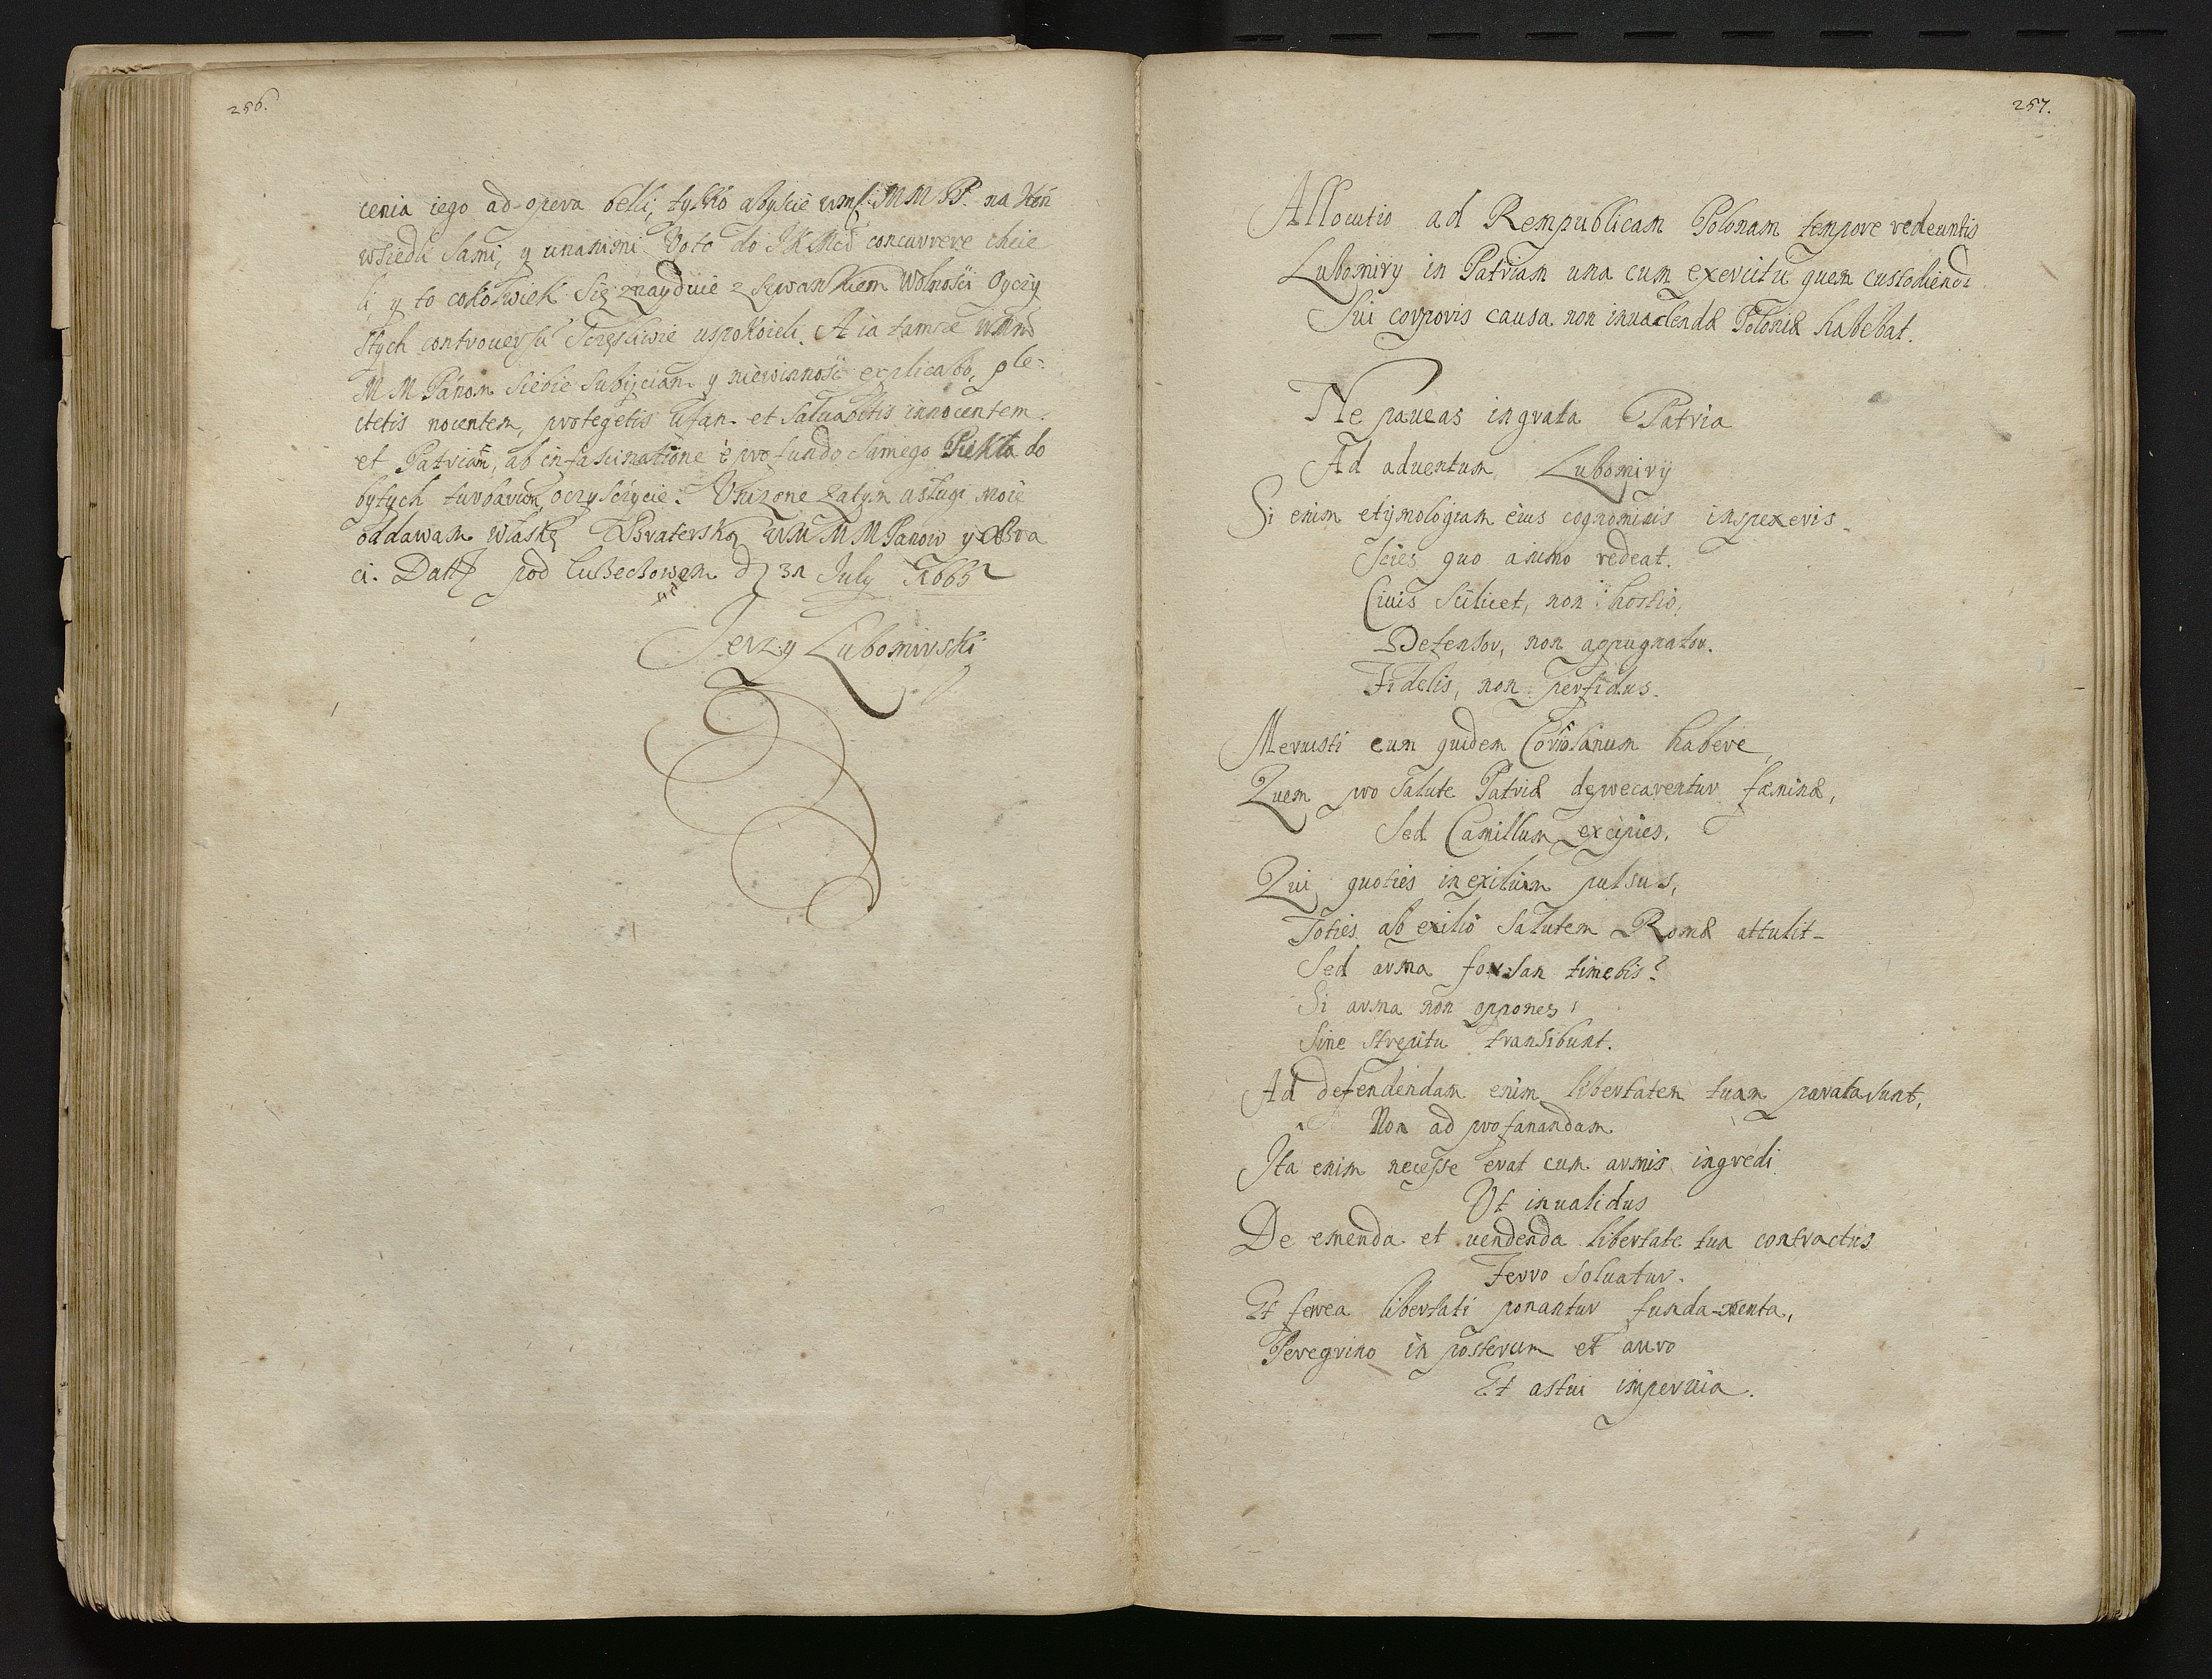 256.
cenia iego ad opera belli, tylko abyscie wmſ. M M PP. na Kon
wsiedli sami, y unanimi Voto do JKMci concurrere chcie
li y to cokolwiek się znayduie z szwankiem Wolności Oyczy
stych controuersii sczęsliwie uspokoieli. A ia tamże WMMo
M M Panom siebie subijciam y niewinność explicabo, ple-
ctetis nocentem, protegetis ufam et saluabitis innocentem.
et Patriam, ab infascinatione è profundo samego Piekła do
bytych turbarum, oczyscicie. Unizone zatym usługi moie
oddawam w łaskę Braterską WM M M Panow y Bra
ci. Datt pod Lubechowem d 31 July 1665
Jerzy Lubomirski
257.
Allocutio ad Rempublicam Polonam tempore redeuntis
Lubomiry in Patriam una cum exercitu quem custodiendi
Sui corporis causa non inuadendæ Poloniæ habebat.
Ne paueas ingrata Patria
Ad aduentum Lubomirij
Si enim etÿmologiam eius cognominis inspexeris
Scies quo animo redeat.
Ciuis scilicet, non hostis,
Defensor, non appugnator.
Fidelis, non perfidus.
Meruisti eum quidem Coriolanum habere,
Quem pro salute Patriæ deprecarentur fæminæ,
Sed Camillum excipies,
Qui quoties in exilium pulsus,
Toties ab exilio salutem Romæ attulit
Sed arma forsan timebis?
Si arma non oppones,
Sine strepitu transibunt.
Ad defendendam enim libertatem tuam parata sunt,
Non ad profanandam
Ita enim necesse erat cum armis ingredi
Ut inualidus
De emenda et uendenda libertate tua contractus
Ferro soluatur.
Et ferrea libertati ponantur funda-menta,
Peregrino in posterum et auro
Et astui imperuia.